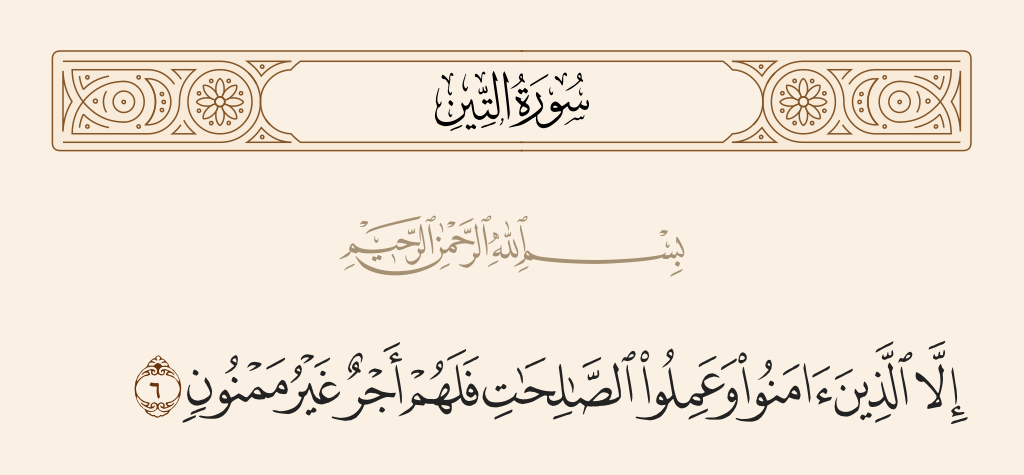 سُورَةُ التِّينِ
بِسْمِ ٱللَّهِ ٱلرَّحْمَٰنِ ٱلرَّحِيمِ
إِلَّا ٱلَّذِينَ ءَامَنُوا۟ وَعَمِلُوا۟ ٱلصَّٰلِحَٰتِ فَلَهُمْ أَجْرٌ غَيْرُ مَمْنُونٍ ٦